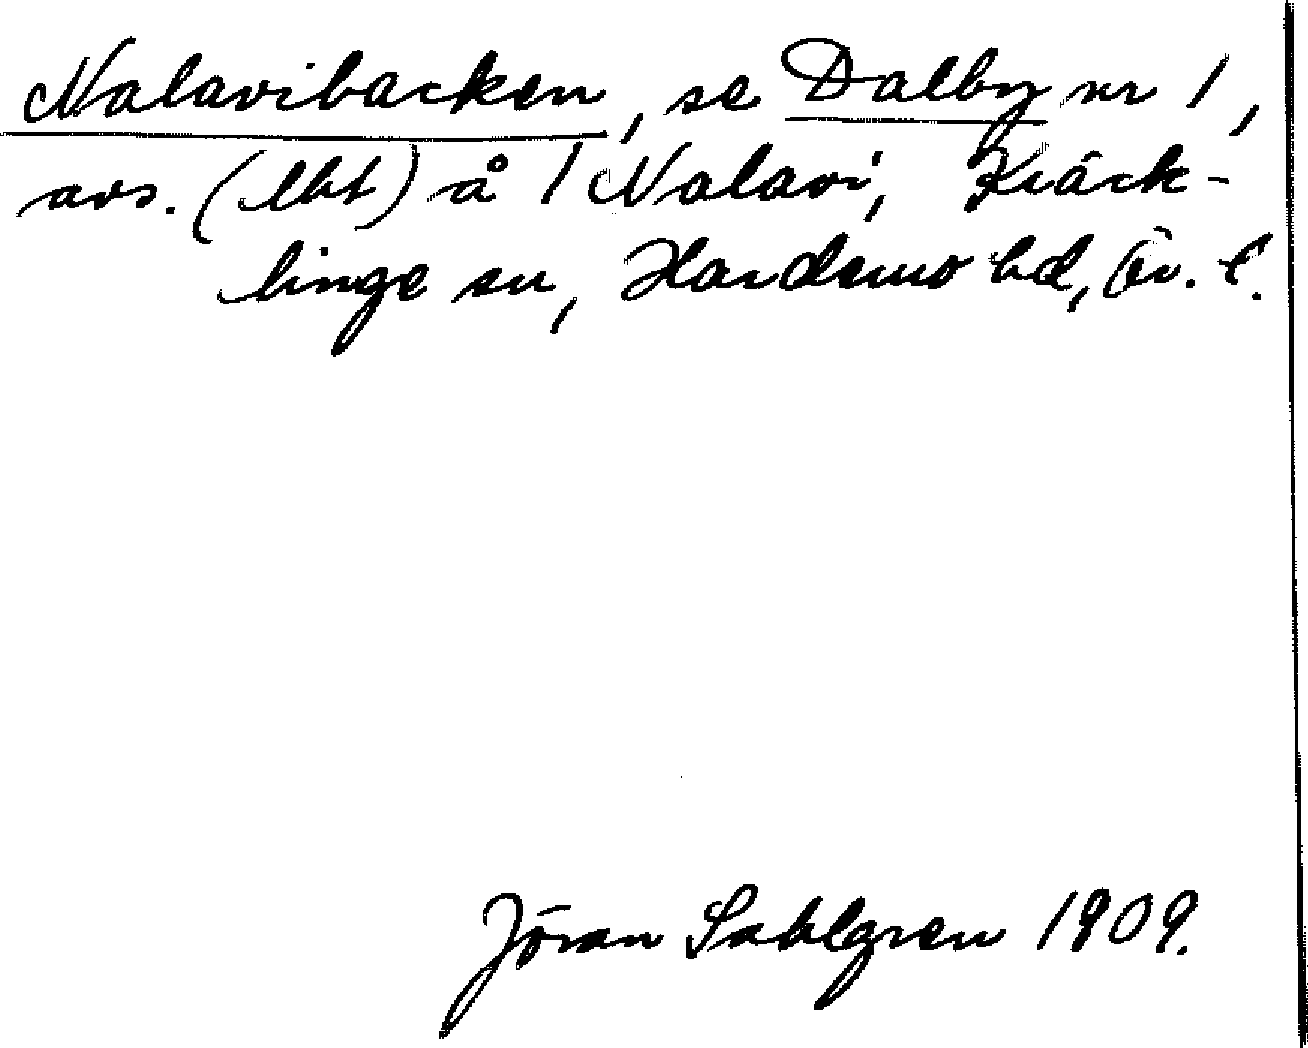 Nalavibacken, se Dalby nr 1,
avs. (lht) å 1 Nalavi, Kräck-
linge sn, Hardemo hd, Ör. l.
Jöran Sahlgren 1909.